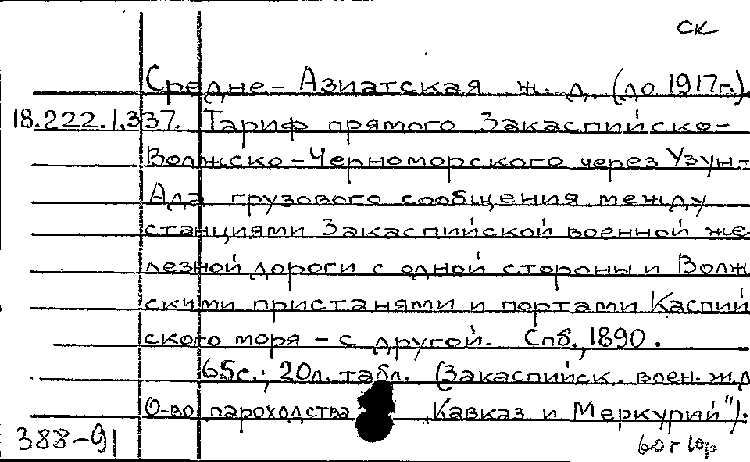 СК
Средне-Азиатская ж. д. (до 1917г.).
18.222.1.337. Тариф прямого Закаспийско-
Волжско-Черноморского через Узун-
Ада грузового сообщения между
станциями Закаспийской военной же-
лезной дороги с одной стороны и Волж-
скими пристанями и портами Каспий-
ского моря - с другой. Спб., 1890.
65с.; 20л. табл. (Закаспийск. воен. ж.д.
О-во пароходства „Кавказ и Меркурий").
388-91